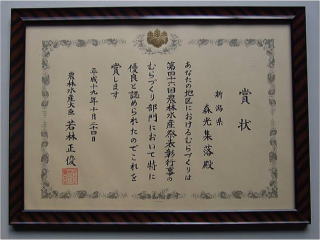 賞状
新潟県
森光集落殿
あなたの地区におけるむらづくりは
第四十六回農林水産祭表彰行事の
むらづくり部門において特に
優良と認められたのでこれを
賞します
平成十九年十月二十四日
農林水産大臣 若林正俊